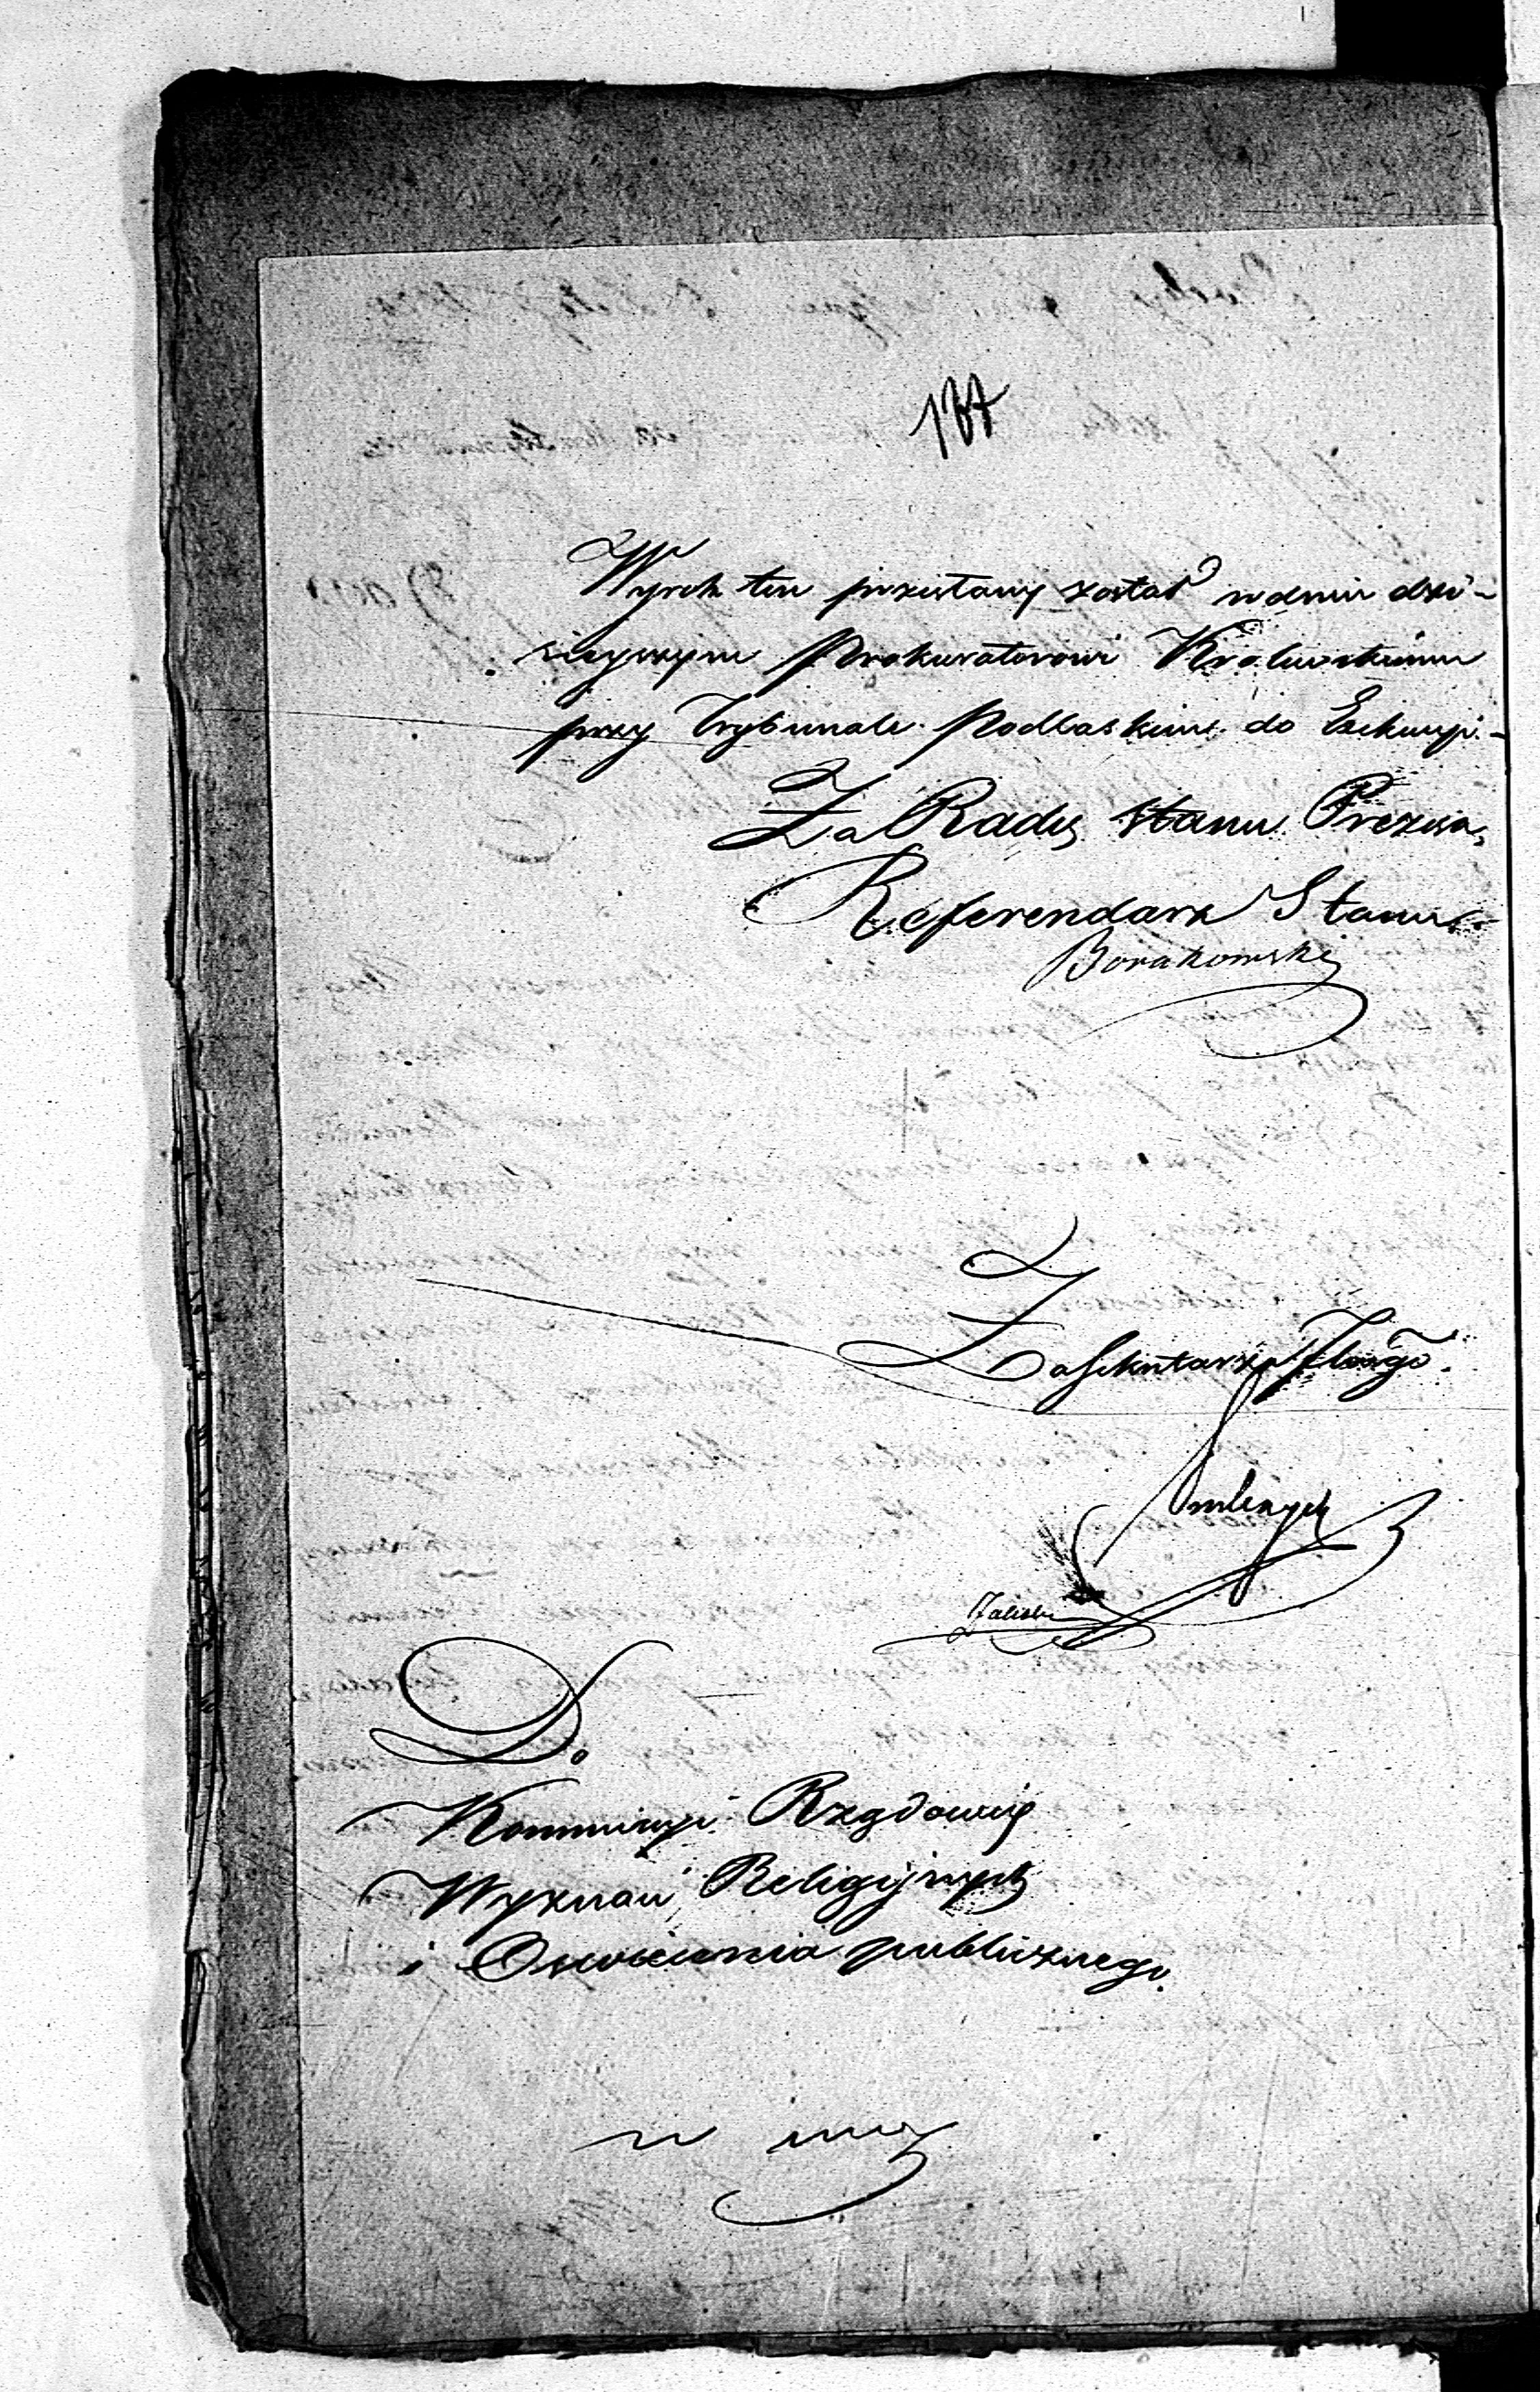 Wyrok ten przesłany został w dniu dzi-
sieyszym Prokuratorowi Królewskiemu
przy Trybunale Podlaskim do Exekucyi.-
Za Radcę Stanu Prezesa,
Referendarz Stanu
Borakowski
Za Sekretarza Jlnego.
Do
Kommissyi Rządowey
Wyznań Religiynych
i Oswiecenia publicznego.
w mcu